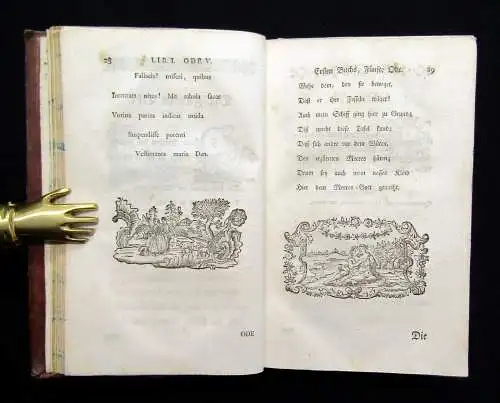 28 LIB. I. ODE V.
Fallacis! miseri, quibus
Intentata nites! Me tabula sacer
Votiva paries indicat uvida
Suspendisse potenti
Vestimenta maris Deo.
ODE
Ersten Buchs, Fünfte Ode. 29
Wehe dem, den sie beweget,
Daß er ihr Fesseln träget!
Auch mein Schiff ging hier zu Grund;
Diß macht diese Tafel kund;
Daß sich andre vor dem Wüten
Des erzürnten Meeres hüten;
Drum sey auch mein nasses Kleid
Hier dem Meeres-Gott geweiht.
Die